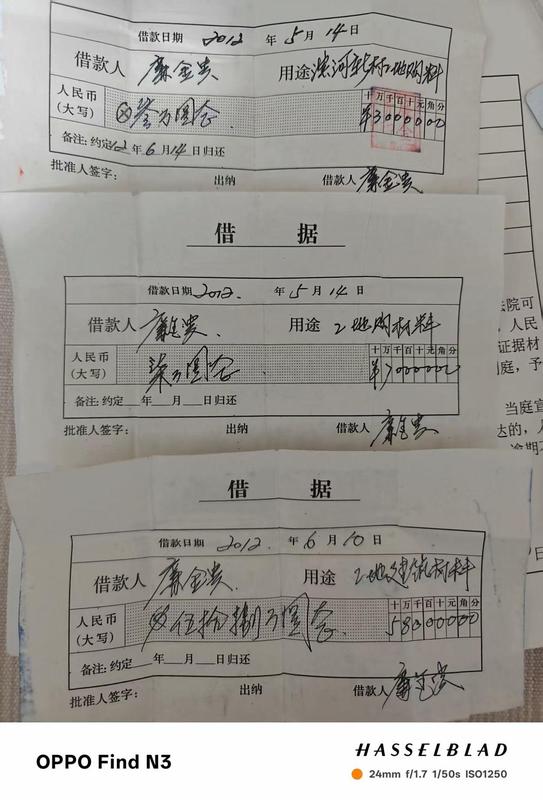 借款日期 2012 年 5 月 14 日
借款人 廉金贵 用途 工地购料
人民币(大写) ⊗叁万圆合 十万千百十元角分 ¥3000000
备注:约定12年6月14日归还
批准人签字: 出纳 借款人 廉金贵
借 据
借款日期 2012. 年 5 月 14 日
借款人 廉金贵. 用途 工地购材料
人民币(大写) 柒万圆合 十万千百十元角分 ¥7000000
备注:约定 年 月 日归还
批准人签字: 出纳 借款人 廉金贵
借 据
借款日期 2012. 年 6 月 10 日
借款人 廉金贵. 用途 工地建筑材料
人民币(大写) ⊗伍拾捌万圆合. 十万千百十元角分 58000000
备注:约定 年 月 日归还
批准人签字: 出纳 借款人 廉金贵
法院可
人民
证据材
庭,予
当庭宣
达的,
OPPO Find N3
HASSELBLAD
24mm f/1.7 1/50s ISO1250